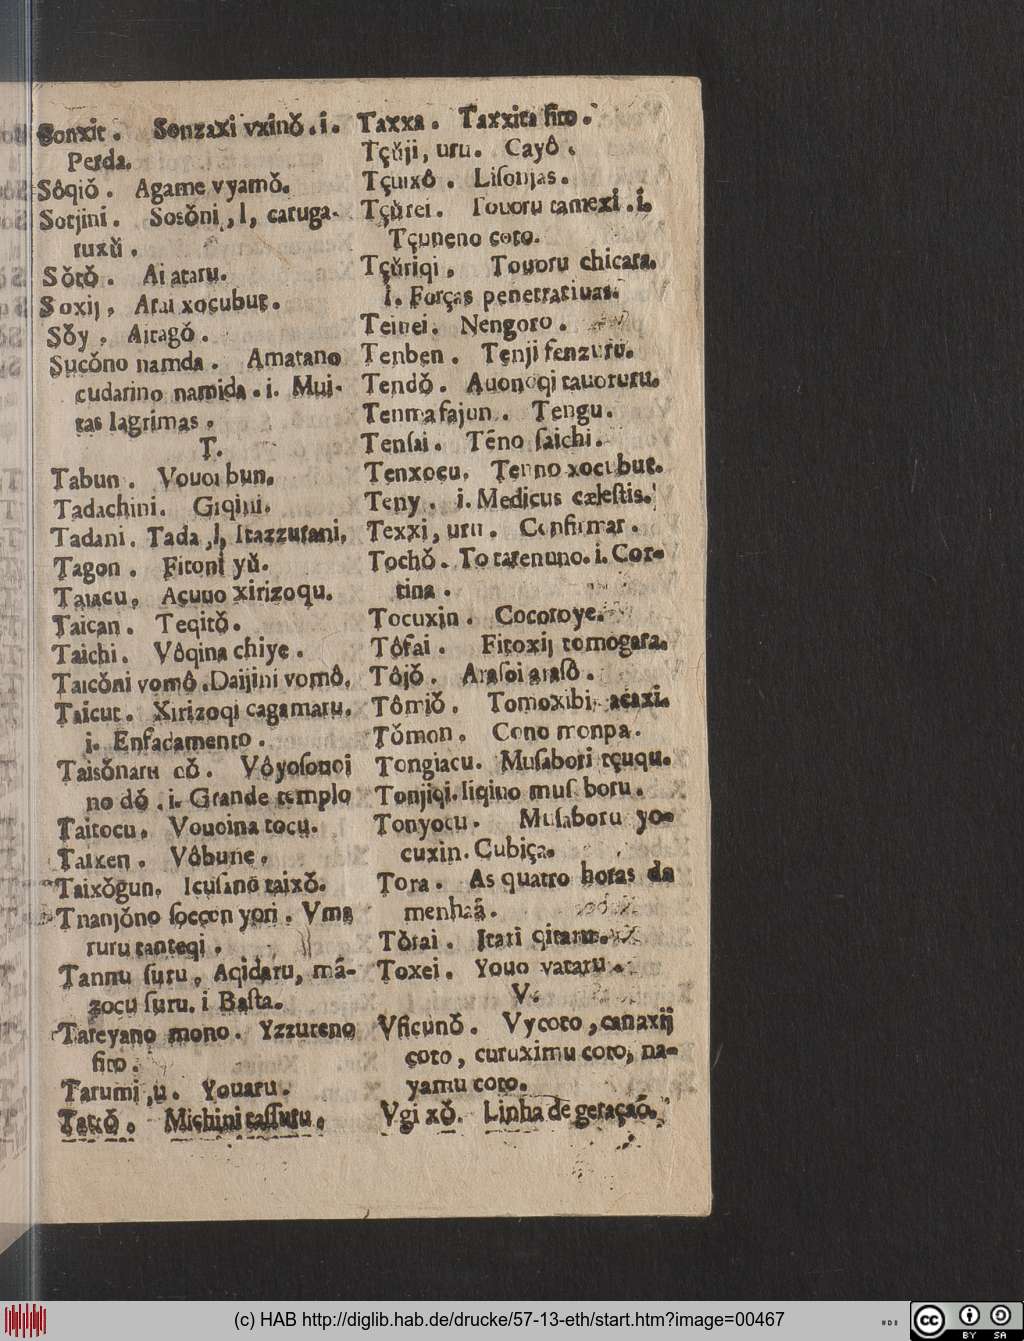 Sonxit. Sonzaxi vxinǒ. i.
Perda.
Sôqiǒ. Agame vyamǒ.
Sotjini. Sosǒni, l, catuga-
ruxŭ.
Sǒtǒ. Ai ataru.
Soxij, Atai xocubut.
Sǒy, Airagǒ.
Sucǒno namda. Amatano
cudarino namida. i. Mui-
tas lagrimas.
T.
Tabun. Vouoi bun.
Tadachini. Giqini.
Tadani. Tada, l, Itazzurani,
Tagon. Fitoni yŭ.
Taiacu, Acuuo xirizoqu.
Taican. Teqitǒ.
Taichi. Vôqina chiye.
Taicǒni vomô. Daijini vomô,
Taicut. Xirizoqi cagamaru.
i. Enfadamento.
Taisǒnaru cǒ. Vôyoſonoi
no dǒ. i. Grande templo
Taitocu, Vouoina tocu.
Taixen. Vôbune,
Taixǒgun, Icuſano taixǒ.
Tnanjǒno ſoccon yori. Vma
ruru tanteqi.
Tannu ſuru, Aqidaru, mã-
zocu ſuru. i Baſta.
Tareyano mono. Yzzureno
fito.
Tarumi, u. Youaru.
Tatxǒ. Michini taſſuru,
Taxxa. Taxxita fito.
Tçŭji, uru. Cayô.
Tçuixô. Liſonjas.
Tçŭrei. Touoru tamexi. i.
Tçuneno coto.
Tçŭriqi, Touoru chicara.
i. Forças penetratiuas.
Teinei. Nengoro.
Tenben. Tenji fenzuru.
Tendǒ. Auonoqi tauoruru.
Tenmafajun. Tengu.
Tenſai. Tẽno ſaichi.
Tenxocu, Tenno xocubut.
Teny. i. Medicus cæleſtis.
Texxi, uru. Confirmar.
Tochǒ. To tarenuno. i. Cor-
tina.
Tocuxin. Cocoroye.
Tôfai. Fitoxij tomogara.
Tôjǒ. Araſoi araſǒ.
Tômiǒ. Tomoxibi, acaxi.
Tǒmon. Cono monpa.
Tongiacu. Muſabori tçuqu.
Tonjiqi. Iiqiuo muſaboru.
Tonyocu. Muſaboru yo-
cuxin. Cubiça.
Tora. As quatro horas da
menhaã.
Tǒrai. Itari qitaru.
Toxei. Youo vataru.
V.
Vficunǒ. Vycoto, canaxij
coto, curuximu coto, na-
yamu coto.
Vgi xǒ. Linha de geraçaõ.
(c) HAB http://diglib.hab.de/drucke/57-13-eth/start.htm?image=00467
cc
BY SA